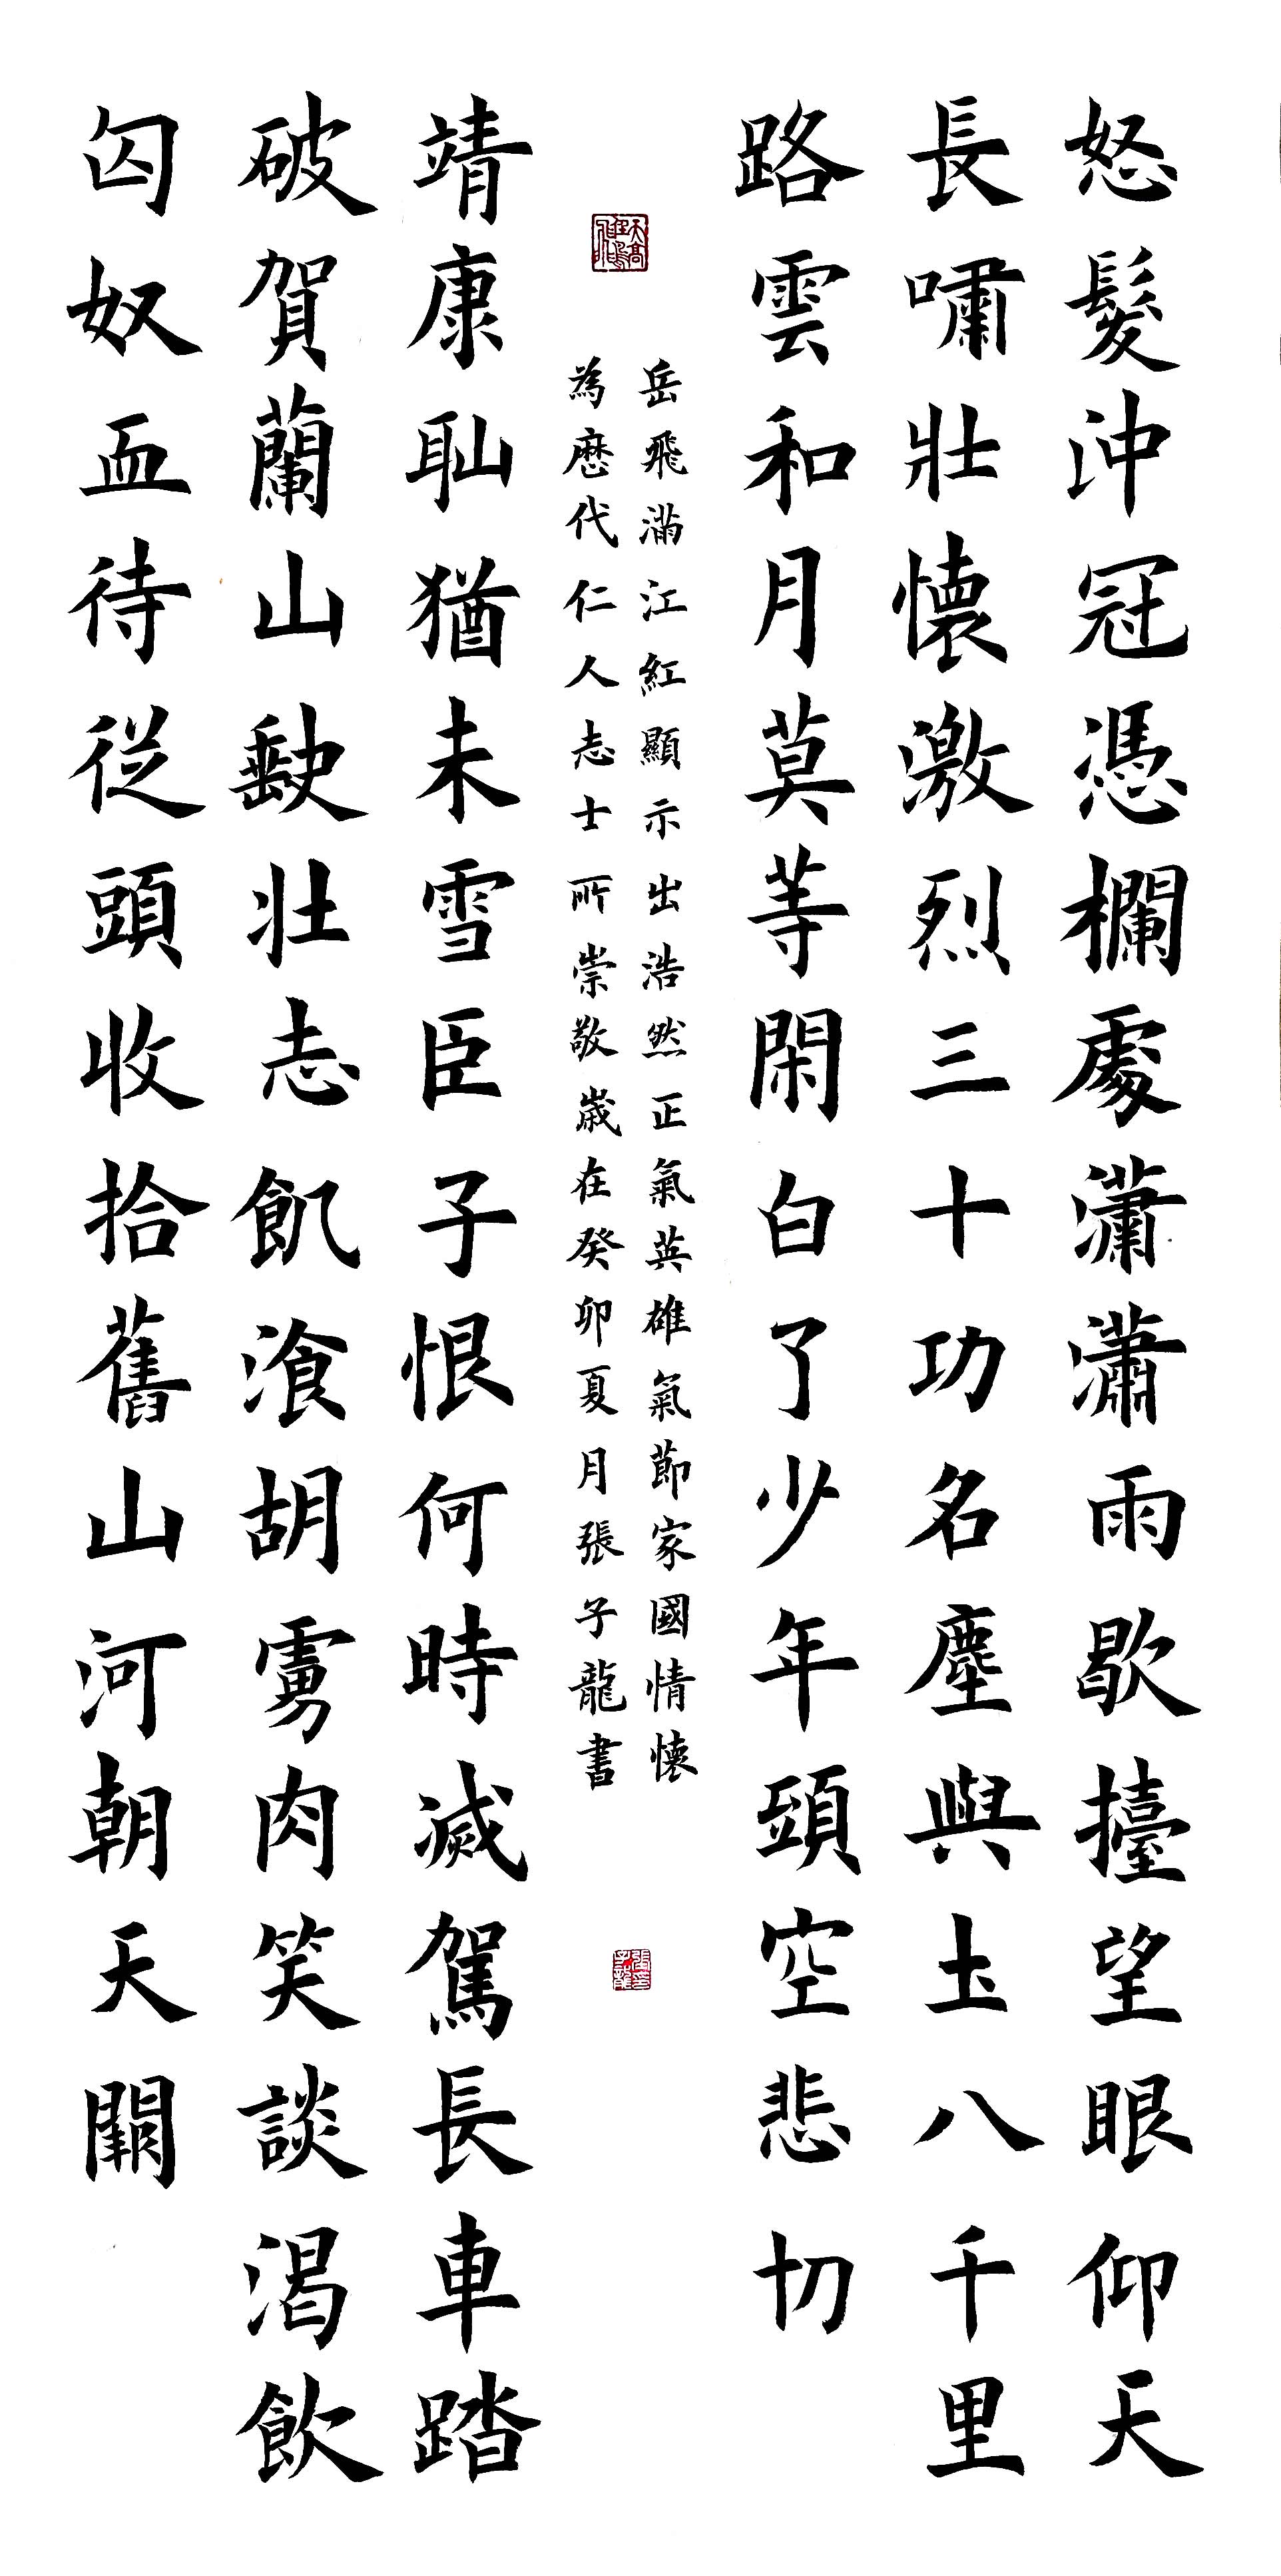 怒髮沖冠憑欄處瀟瀟雨歇擡望眼仰天
長嘯壯懷激烈三十功名塵與土八千里
路雲和月莫等閑白了少年頭空悲切
岳飛滿江紅顯示出浩然正氣英雄氣節家國情懷
為歷代仁人志士所崇敬歲在癸卯夏月張子龍書
靖康恥猶未雪臣子恨何時滅駕長車踏
破賀蘭山缺壯志飢飡胡虜肉笑談渴飲
匈奴血待從頭收拾舊山河朝天闕